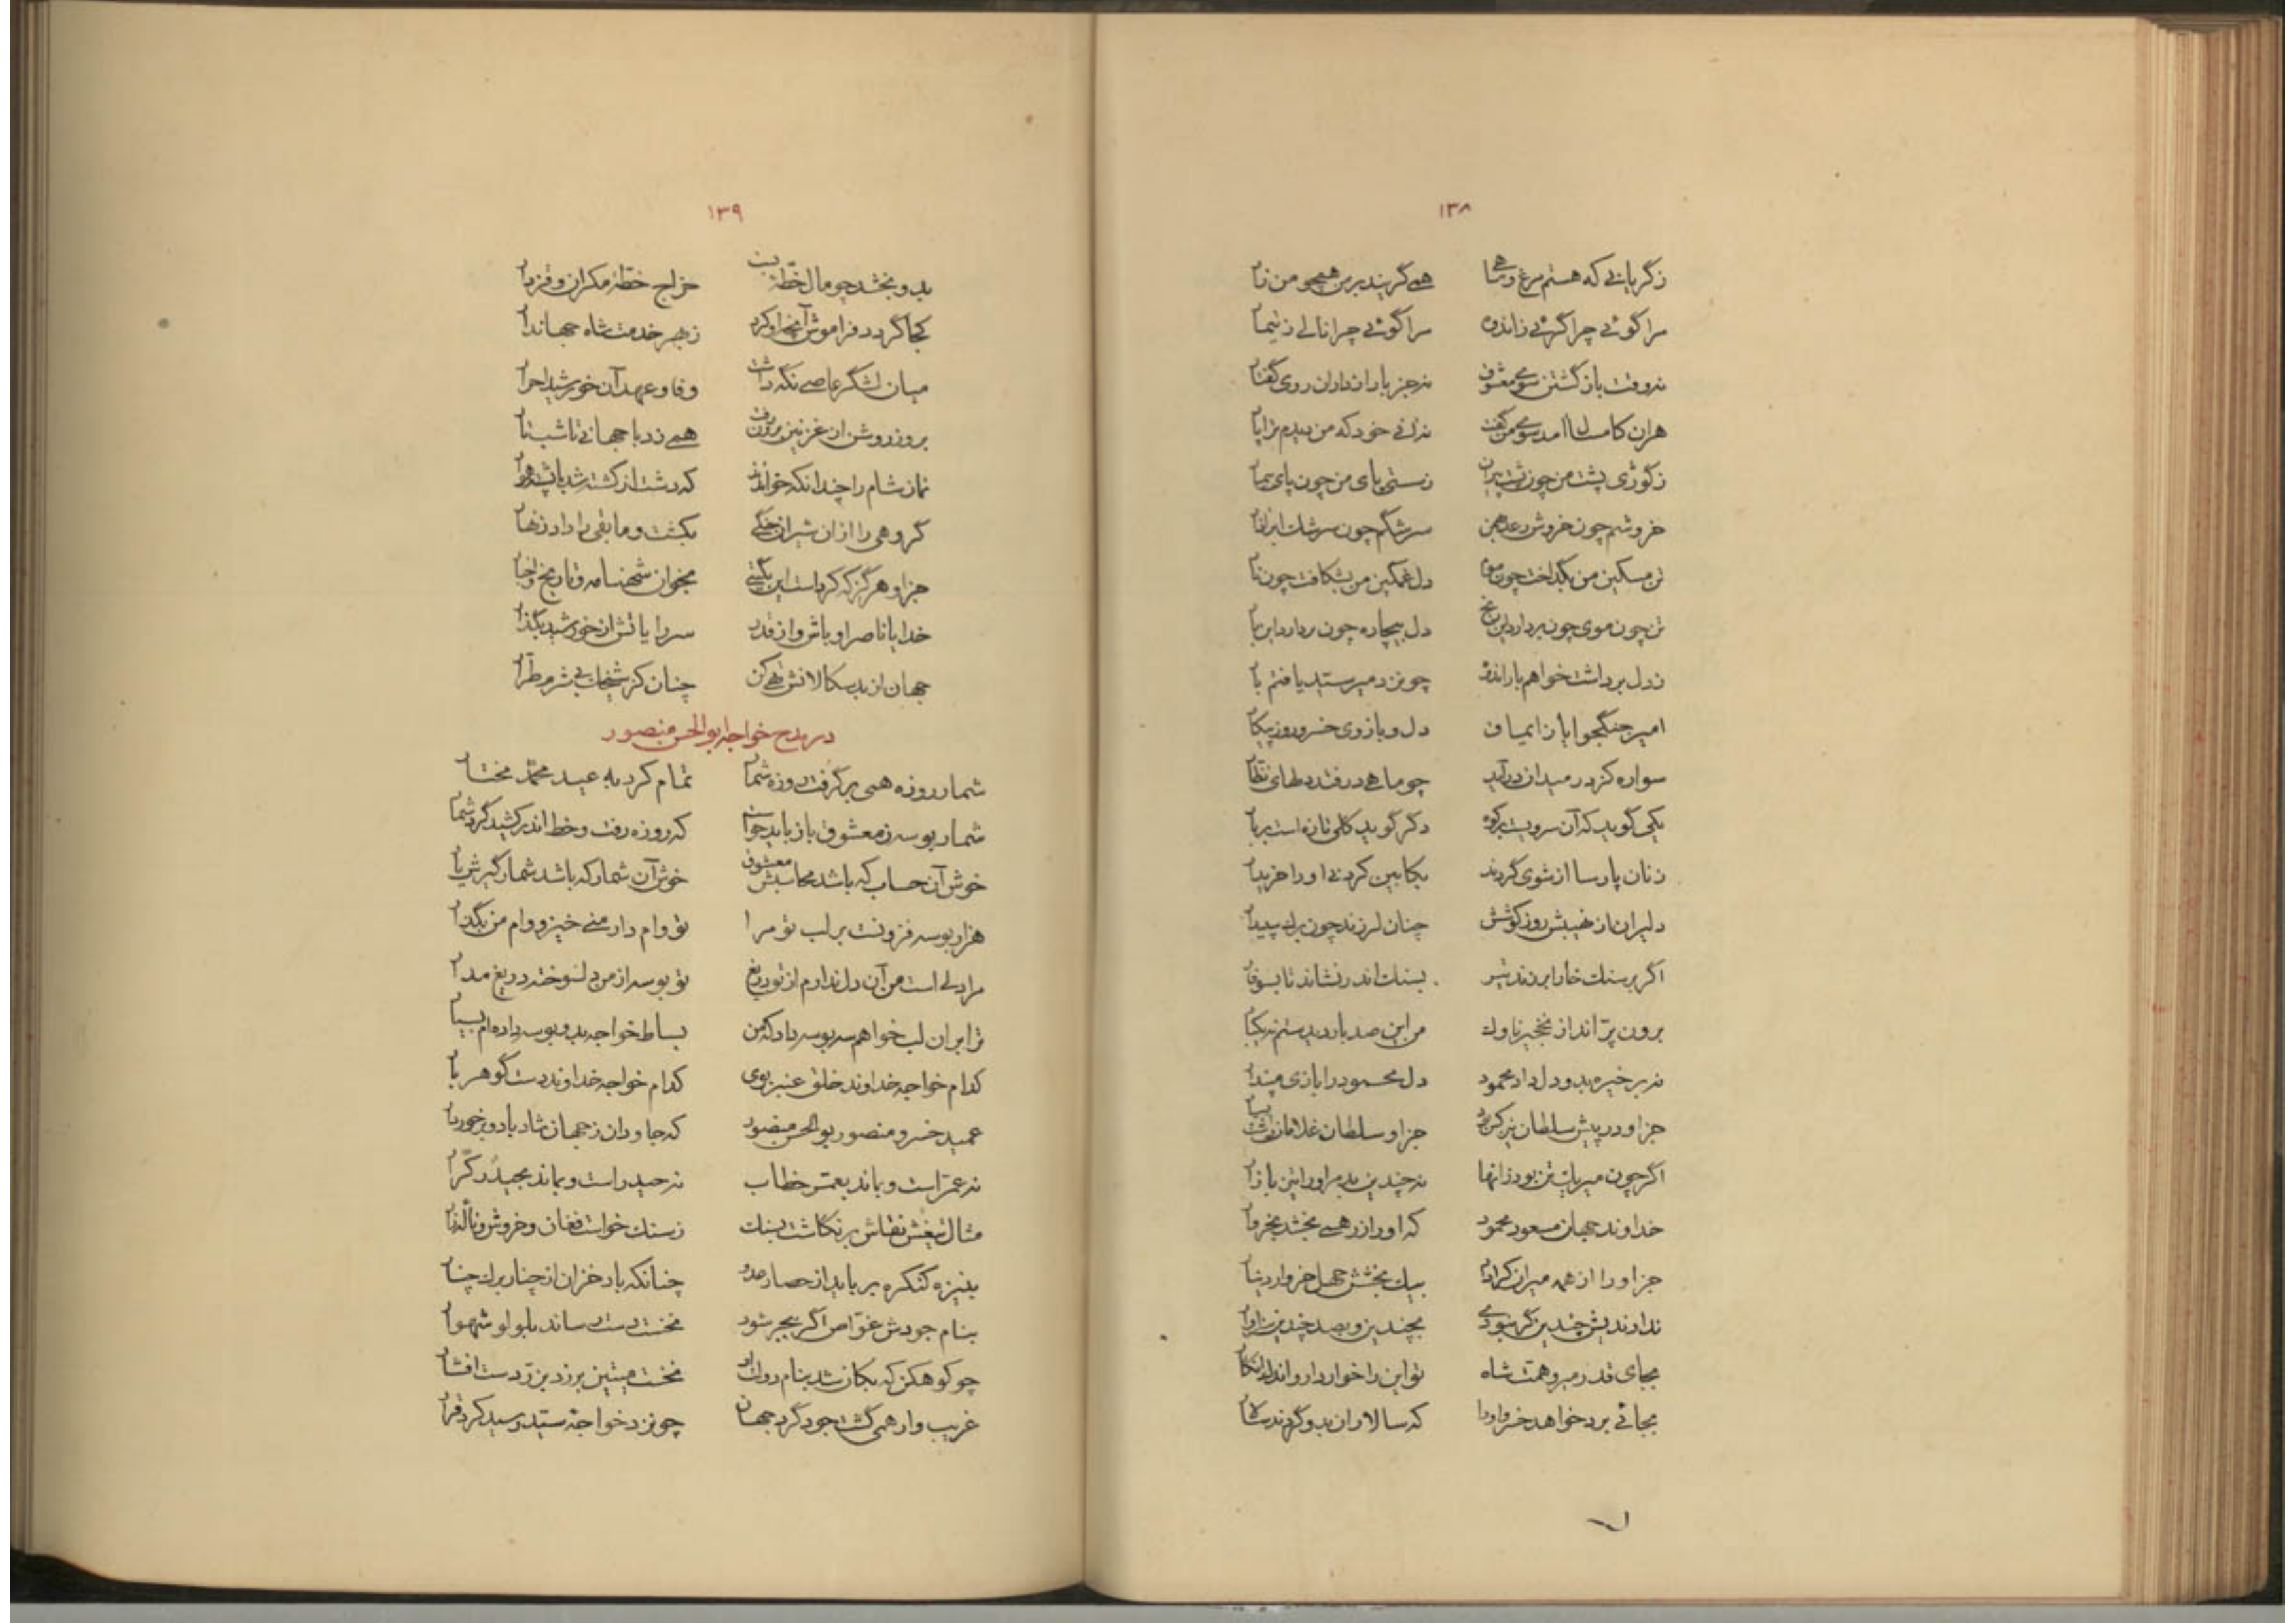 ۱۳۸
ز گریانی که هستم مرغ و ماهی همی گریند بر من همچو من زار
مرا گوئی چرا گرئی ز انده مرا گوئی چرا نالی ز تیمار
نه وقت بازگشتن سوی معشوق نه جز باران داران روی گفتار
هران کامسال آمد سوی من گفت نه آنی خود که من دیدم ترا پار
ز کوژی پشت من چون پشت پیران ز سستی پای من چون پای بیمار
خروشم چون خروش رعد بهمن سرشکم چون سرشک ابر آذار
تن مسکین من بگداخت چون موم دل غمگین من بشکافت چون نار
تن چون موی چون بردارد این رنج دل بیچاره چون بردارد این بار
ز دل برداشت خواهم بار انده چو نزد میر سید یافتم بار
امیر جنگجو ایاز ایمیاق دل و بازوی خسرو روز پیکار
سواره کز در میدان درآید چو ماهی درفتد دلهای نظار
یکی گوید که آن سرویست بر کوه دگر گوید گلی تازه است بر بار
زنان پارسا از شوی گردند بکابین کردن او را خریدار
دلیران از نهیبش روز کوشش چنان لرزند چون برگ سپیدار
اگر بر سنگ خارا برزند تیر بسنگ اندر نشاند تا بسوفار
برون پرّاند از نخجیر ناوک من این صد بار دیدستم نه یکبار
نه بر خیره بدو دل داد محمود دل محمود را بازی مپندار
جز او در پیش سلطان نیز کس بود جز او سلطان غلامان داشت بسیار
اگر چون میر یک تن بود زانها نه چندین بد مر او را تیز بازار
خداوند جهان مسعود محمود که او را زر همی بخشد بخروار
جز او را از همه میران کرا داد بیک بخشش چهل خروار دینار
نداوندیش چندین گر نبودی بچندین و بصد چندین سزاوار
بجای قدر میر و همت شاه تو این را خوار دار و اندک انگار
بجائی برد خواهد خسرو او را که سالاران بدو گردند سالار
۱۳۹
بدو بخشد چو مال خطّهٔ بست خراج خطّهٔ مکران و قزدار
کجا گردد فراموش آنچه او کرد ز بهر خدمت شاه جهاندار
میان لشگر عاصی نگه داشت وفا و عهد آن خورشید احرار
بروز روشن از غزنین برون رفت همی زد با جهانی تا شب تار
نماز شام را چندانکه خوانند که دشت از کشته شد با پشته هموار
گروهی را از آن شیران جنگی بکشت و مابقی را داد زنهار
جز او هرگز که کرد است این بگیتی بخوان شهنامه و تاریخ و اخبار
خدایا ناصر او باش و از قدر سر رایاتش از خورشید بگذار
جهان از بدسگالانش تهی کن چنان کز شیخکان بی شرم طرار
در مدح خواجه ابوالحسن منصور
شمار روزه همی برگرفت روزه شمار تمام کرد به عید محمّد مختار
شمار بوسه ز معشوق باز باید خواست که روزه رفت و خط اندر کشید گرد شمار
خوش آن حساب که باشد محاسبش معشوق خوش آن شمار که باشد شمارگیرش یار
هزار بوسه فزونست بر لب تو مرا تو وام دار منی خیز و وام من بگذار
مرا دلی است من آن دل ندارم از تو دریغ تو بوسه از من دلسوخته دریغ مدار
ترا بران لب خواهم سه بوسه داد که من بساط خواجه بدو بوسه داده ام بسیار
کدام خواجه خداوند خلق عنبر بوی کدام خواجه خداوند دست گوهر بار
عمید خسرو منصور بوالحسن منصور که جاودان ز جهان شاد باد و برخوردار
نه عمر است و بماند بعمر خطاب نه حیدر است و بماند بحیدر کرّار
مثال تیغش نقاش بر نگاشت بسنگ ز سنگ خواست فغان و خروش و ناله زار
بنیزه کنگره برباید از حصار عدو چنانکه باد خزان از چنار برگ چنار
بنام جودش غوّاص اگر ببحر شود نخست دست رساند بلولو شهوار
چو کوهکن که بکان شد بنام دولت او نخست میتین برزد بزر دست افشار
غریب وار همی گشت جود گرد جهان چو نزد خواجه سید رسید کرد قرار